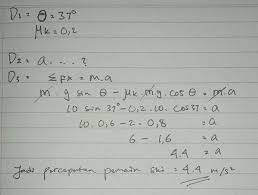 D₁ = θ = 37°
μk = 0,2
D₂ = a . . . ?
D₃ = Σ Fx = m.a
m. g sin θ - μk. m.g. cos θ = m.a
10 sin 37° - 0,2. 10. cos 37 = a
10. 0,6 - 2. 0,8 = a
6 - 1,6 = a
4.4 = a
Jadi percepatan pemain ski = 4.4 m/s²